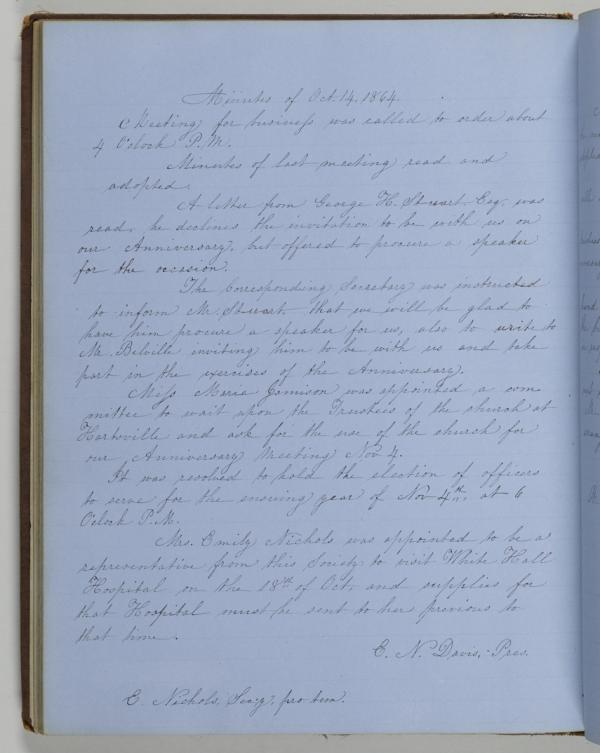 Minutes of Oct. 14. 1864.
Meeting for business was called to order about
4 O'clock P.M.
Minutes of last meeting read and
adopted.
A letter from George H. Stuart, Esq. was
read, he declines the invitation to be with us on
our Anniversary, but offered to procure a speaker
for the occasion.
The Corresponding Secretary was instructed
to inform Mr. Stuart that we will be glad to
have him procure a speaker for us, also to write to
Mr. Belville inviting him to be with us and take
part in the exercises of the Anniversary.
Miss Maria Jamison was appointed a com-
mittee to wait upon the Trustees of the church at
Hartsville and ask for the use of the church for
our Anniversary Meeting Nov 4.
It was resolved to hold the election of officers
to serve for the ensuing year of Nov 4th, at 6
O'clock P.M.
Mrs. Emily Nichols was appointed to be a
representative from this Society to visit White Hall
Hospital on the 18th of Oct. and supplies for
that Hospital must be sent to her previous to
that time.
E. N. Davis, Pres.
E. Nichols, Sec'y. pro tem.